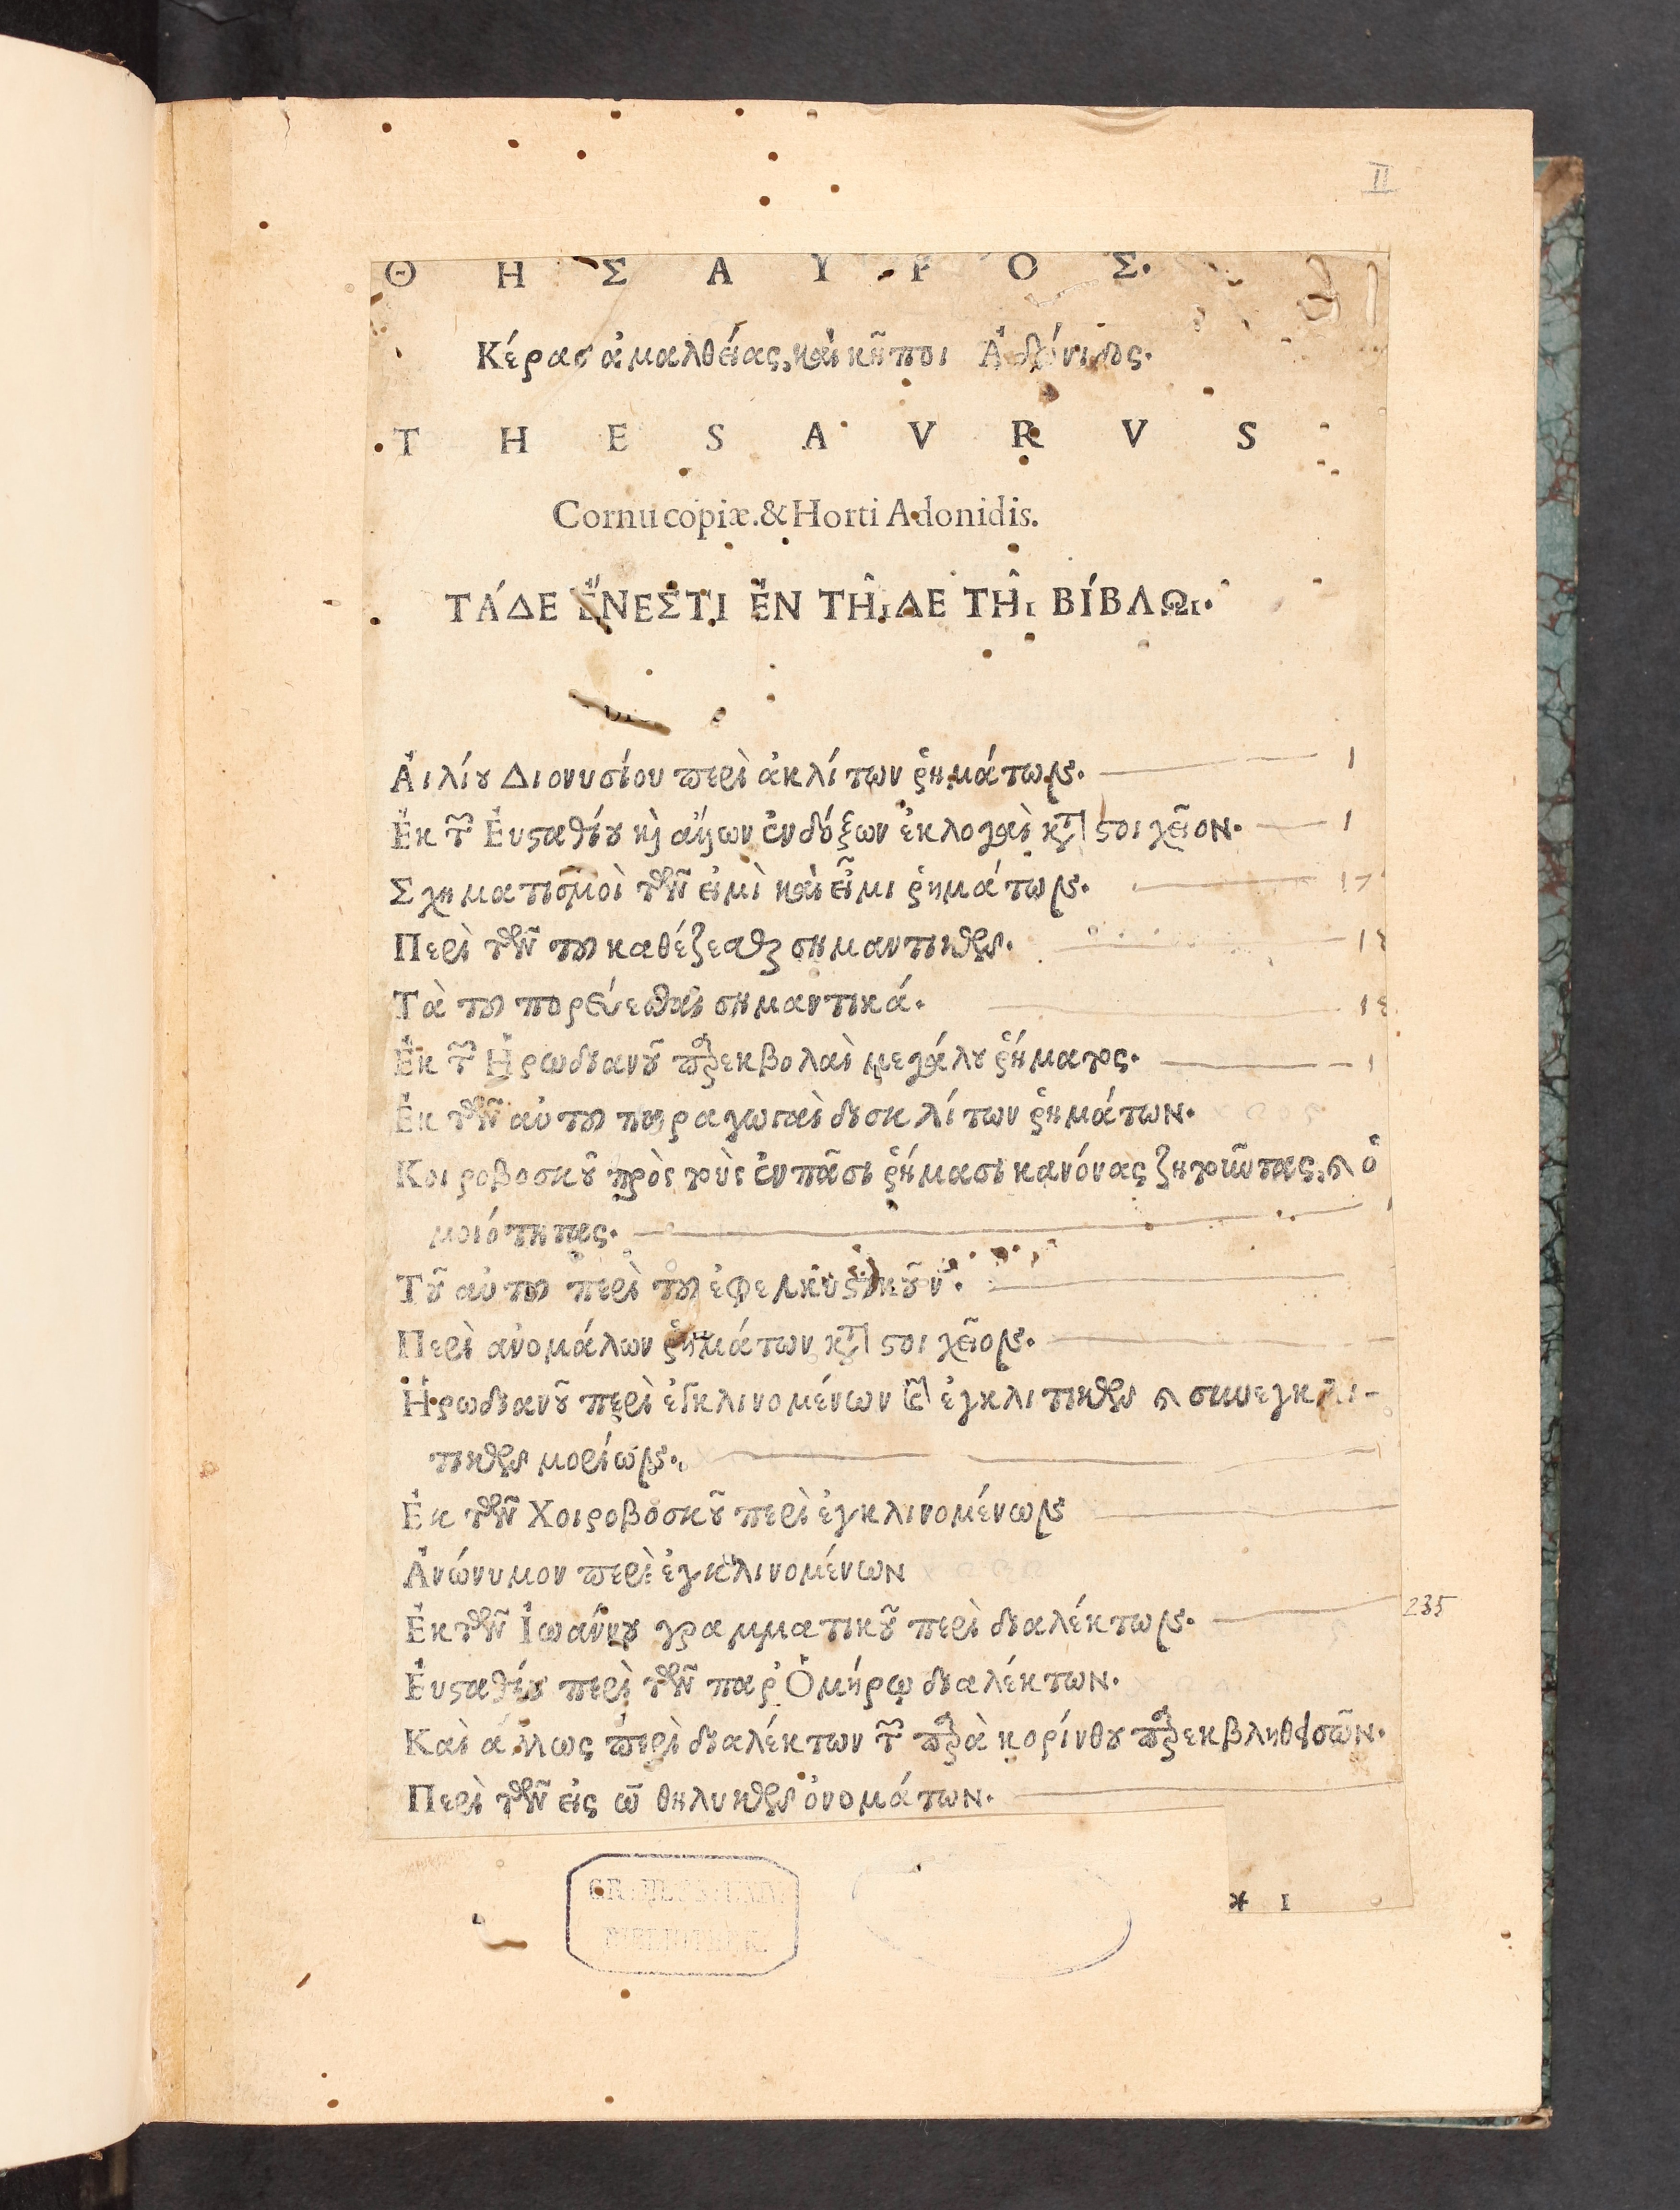 II
Θ Η Σ Α Υ Ρ Ο Σ.
Κέρας ἀμαλθείας, καὶ κῆποι Ἀδώνιδος.
T H E S A V R V S
Cornu copiæ. & Horti Adonidis.
ΤΆΔΕ ἜΝΕΣΤΙ ἘΝ ΤΗ͂ιΔΕ ΤΗ͂ι ΒΊΒΛΩι.
Ἀιλίου Διονυσίου περὶ ἀκλίτων ῥημάτων. 1
Ἐκ τῶν Ἐυσαθίου καὶ ἄλλων ἐνδόξων ἐκλογαὶ κατὰ ϛοιχεῖον. 1
Σχηματισμοὶ τῶν εἰμὶ καὶ εἶμι ῥημάτων. 17
Περὶ τῶν τοῦ καθέζεσθαι σημαντικῶν.
Τὰ τοῦ πορεύεσθαι σημαντικά.
Ἐκ τῶν Ἡρωδιανοῦ παρεκβολαὶ μεγάλου ῥήματος.
Ἐκ τῶν αὐτοῦ παραγωγαὶ δυσκλίτων ῥημάτων.
Κοιροβοσκοῦ πρὸς τοὺς ἐν πᾶσι ῥήμασι κανόνας ζητοῦντας, καὶ ὁ
μοιότητας.
Τοῦ αὐτοῦ περὶ τοῦ ἐφελκυϛικοῦ ν.
Περὶ ἀνομάλων ῥημάτων κατὰ ϛοιχεῖον.
Ἡρωδιανοῦ περὶ ἐγκλινομένων καὶ ἐγκλιτικῶν καὶ συνεγκλι-
τικῶν μορίων.
Ἐκ τῶν Χοιροβοσκοῦ περὶ ἐγκλινομένων
Ἀνώνυμον περὶ ἐγκλινομένων
Ἐκ τῶν Ἰωάννου γραμματικοῦ περὶ διαλέκτων. 235
Ἐυϛαθίου περὶ τῶν παρ' Ὁμήρῳ διαλέκτων.
Καὶ ἄλλως περὶ διαλέκτων τῶν παρὰ κορίνθου παρεκβληθεισῶν.
Περὶ τῶν εἰς ω θηλυκῶν ὀνομάτων.
* I